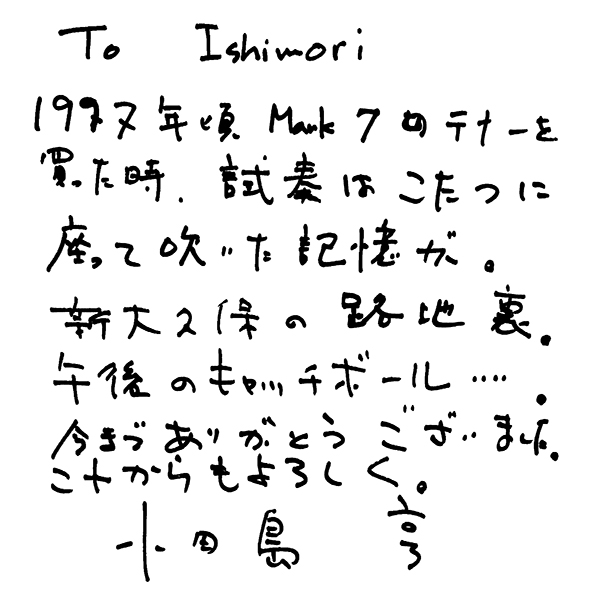 To Ishimori
年頃 Mark 7 のテナーを
買った時、試奏はこたつに
座って吹いた記憶が。
新大久保の路地裏。
午後のキャッチボール‥‥。
今までありがとうございました。
これからもよろしく。
小田島 亨